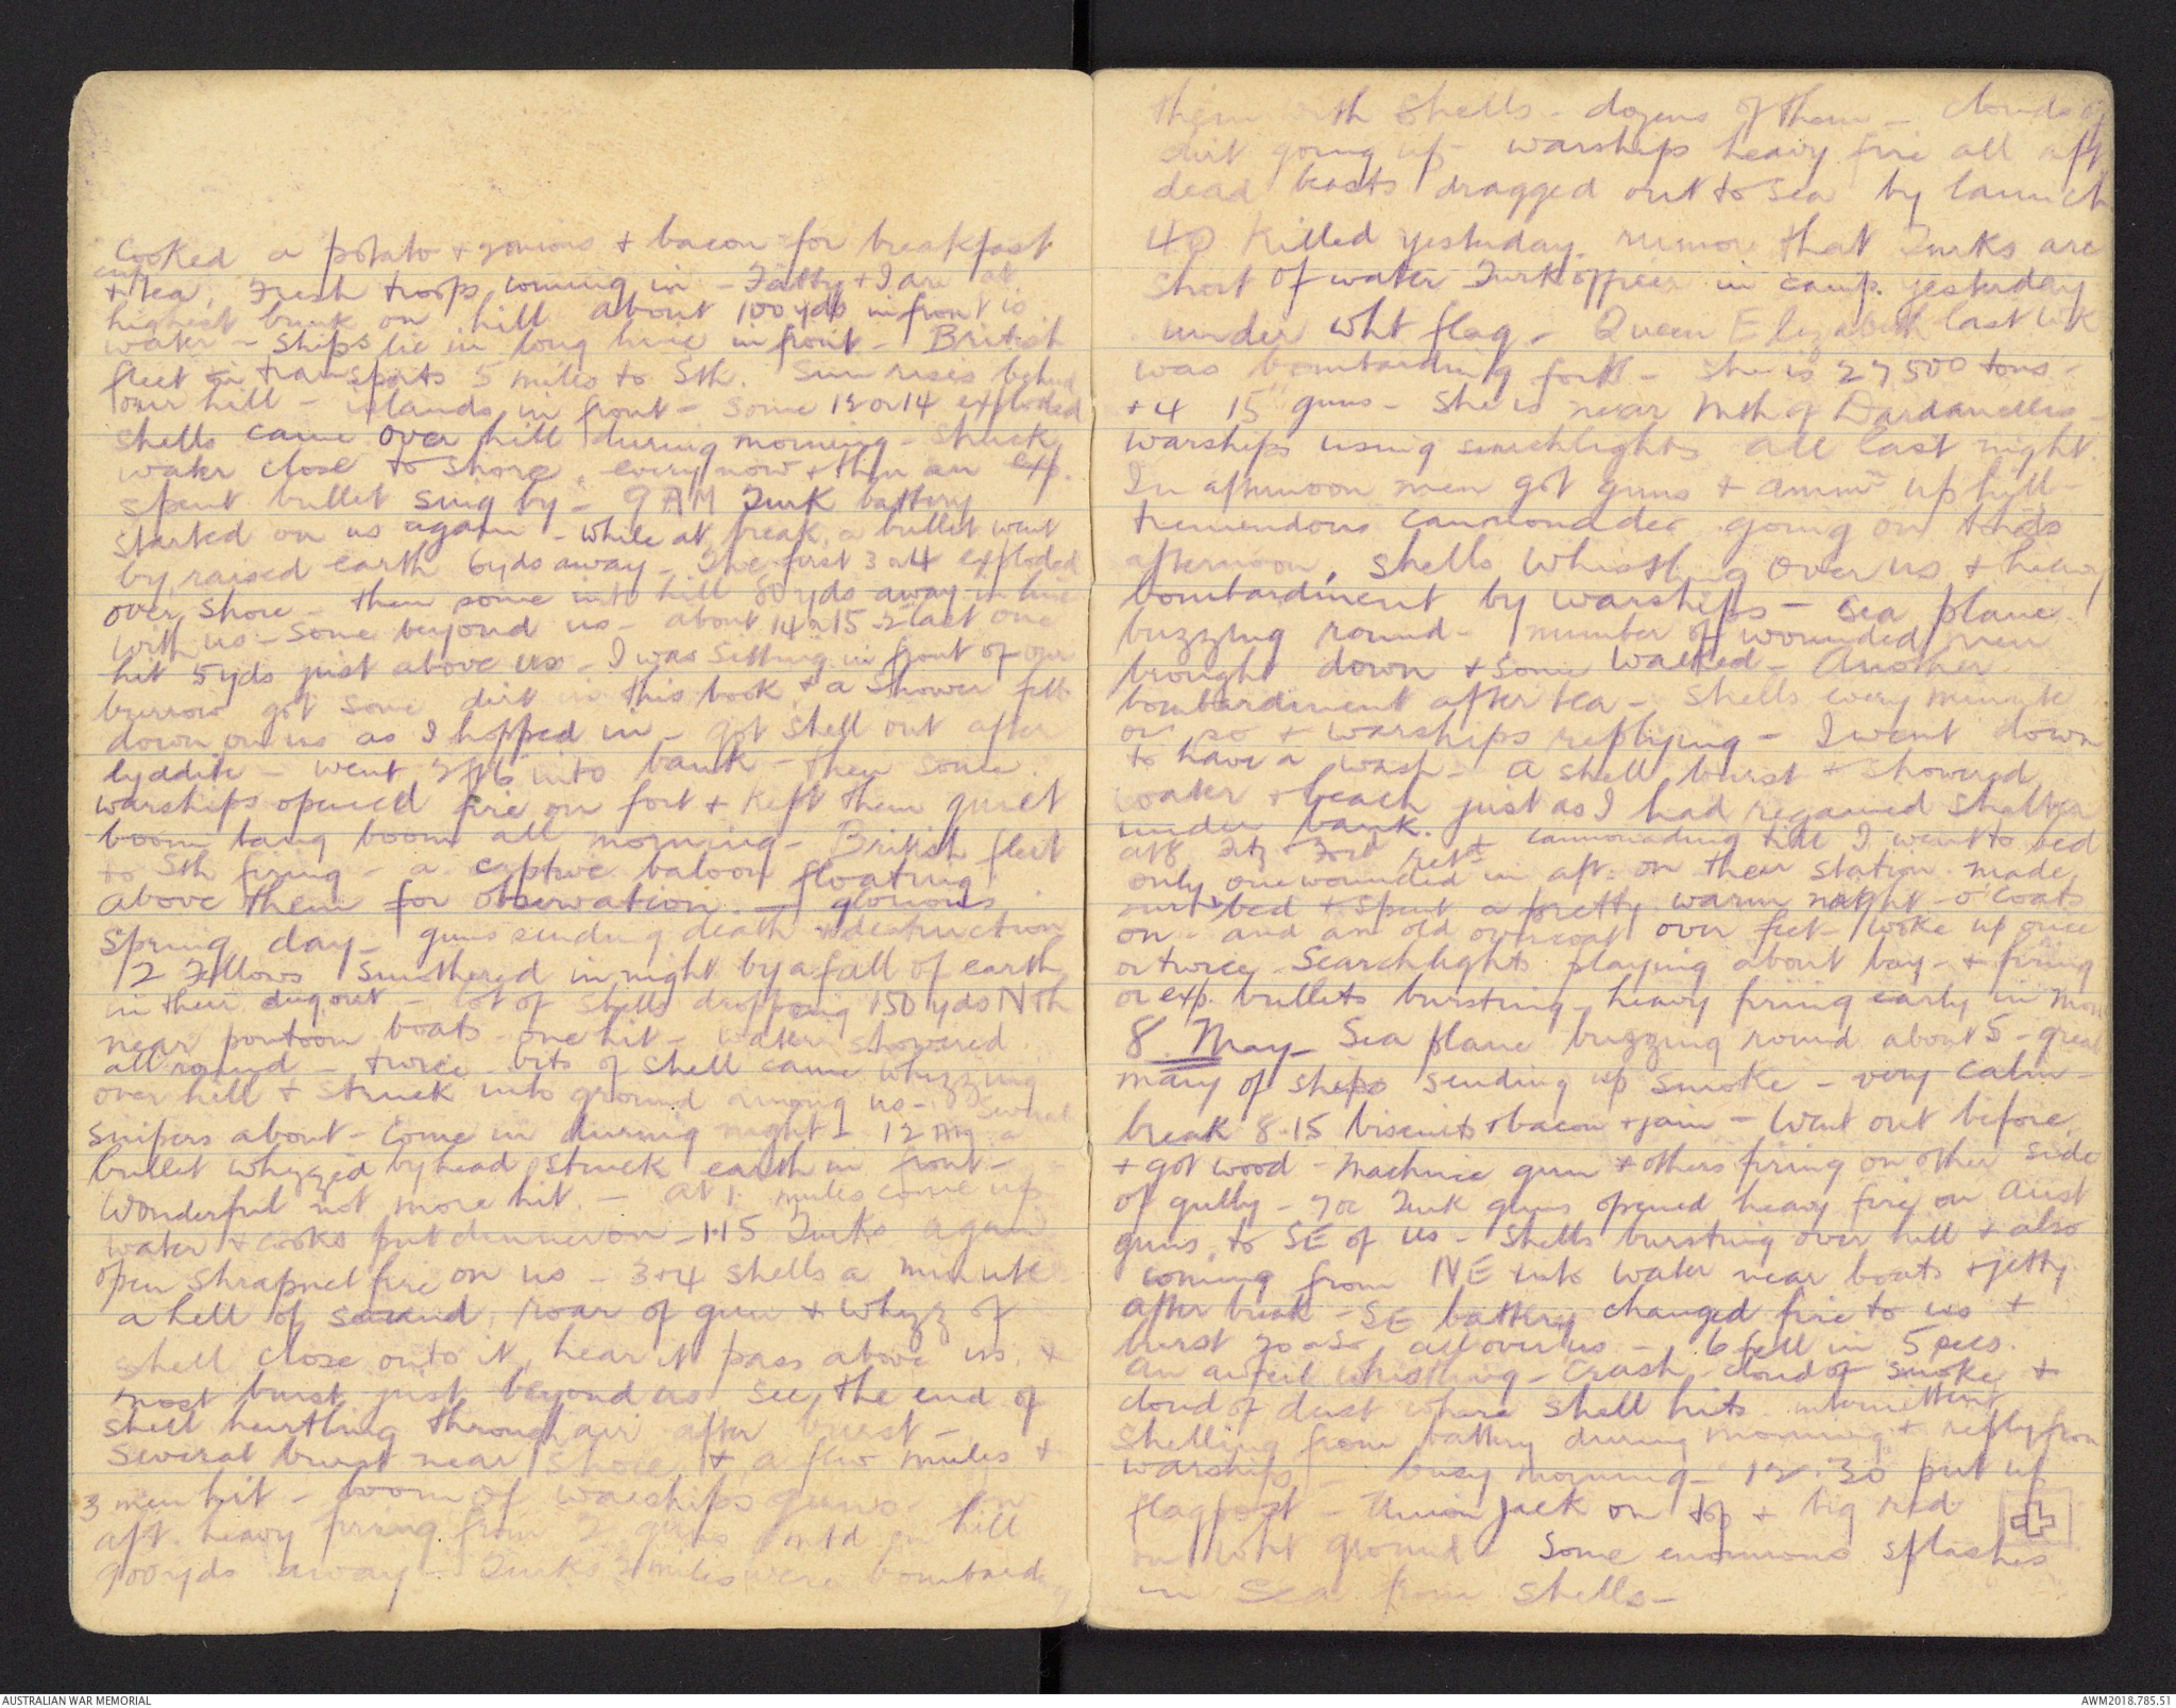 Cooked a potato + onions + bacon for breakfast
+ tea. Fresh troops coming in - Fatty + I are at
highest bunk on hill about 100 yds in front is
water - Ships lie in long line in front - British
fleet transports 5 miles to Sth. Sun rises behind
our hill - islands in front - Some 12 or 14 exploded
shells came over hill during morning - struck
water close to shore, every now + then an exp.
spent bullet sing by - 9 AM Turk battery
started on us again - while at break. a bullet went
by, raised earth 6yds away - The first 3 or 4 exploded
over shore - then some into hill 80 yds away in line
with us - Some beyond us - about 14 or 15 - last one
hit 5 yds just above us - I was sitting in front of our
burrow got some dirt in this book + a shower fell
down on us as I hopped in - got shell out after
lyddite - went 2ft6 into bank - then some
warships opened fire on fort + kept them quiet
boom bang boom all morning - British fleet
to Sth firing - a captive baloon floating
above them for observation. - glorious
spring day - guns sending death + destruction
12 Fellows smothered in night by a fall of earth
in their dugout - lot of shells dropping 150 yds Nth
near pontoon boats - one hit - water showered
all round - twice bits of shell came whizzing
over hill + struck into ground among us - Several
snipers about - come in during night - 12 a
bullet whizzed by head struck earth in front -
Wonderful not more hit. - At 1. mules come up
water + cooks put dinner on - 1.15 Turks again
open shrapnel fire on us - 3 + 4 shells a minute
a hell of sound, roar of gun + whizz of
shell close onto it, hear it pass above us, +
most burst just beyond us See the end of
shell hurtling through air after burst -
Several burst near shore, + a few mules +
3 men hit - boom of warships guns - In
aft. heavy firing from 2 guns mtd on hill
900yds away - Turks 2 miles were bombarding
them with shells - dozens of them - clouds of
dirt going up - warships heavy fire all aft
dead beasts dragged out to sea by launch
40 Killed yesterday. rumor that Turks are
short of water Turk officer in camp yesterday
under wht flag - Queen Elizabeth last wk
was bombarding forts - She is 27500 tons -
+ 4 15" guns - She is near Mth of Dardanelles -
warships using searchlights all last night.
In afternoon men got guns + ammn up hill -
tremendous cannonades going on this
afternoon, shells whistling over us + heavy
bombardment by warships - Sea plane
buzzing round - number of wounded men
brought down + some walked - Another
bombardment after tea - shells every minute
or so + warships replying - I went down
to have a wash - a shell burst + showered
water + beach just as I had regained shelter
under bank. cannonading till I went to bed
at 8 Fitz Ford
only one wounded in aft: on their station. made
bed + spent a pretty warm night - o'coats
on - and an old overcoat over feet - woke up once
or twice - Searchlights playing about bay - + firing
or exp. bullets bursting - heavy firing early in morn
8 May - Sea plane buzzing round about 5 - great
many of ships sending up smoke - very calm -
break 8.15 biscuits + bacon + jam - Went out before
+ got wood - machine gun + others firing on other side
of gully - Turk guns opened heavy fire on Aust
guns, to SE of us - Shells bursting over hill + also
coming from NE into water near boats + jetty.
After break - SE battery changed fire to us +
burst 20 or so all over us - 6 fell in 5 secs.
An awful whistling - crash - cloud of smoke +
cloud of dust where shell hits. intermittent
shelling from battery during morning + reply from
warships - busy morning - 12.30 put up
flagpost - Union Jack on top + big red
on wht ground - Some enormous splashes
in Sea from shells -
AUSTRALIAN WAR MEMORIAL
AWM2018.785.51